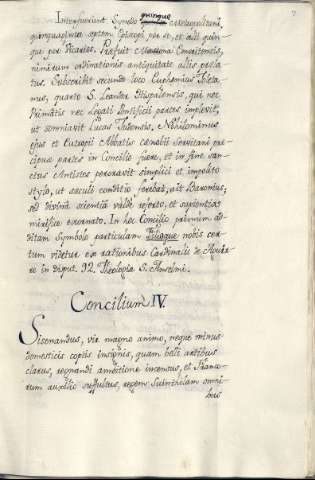 7
quinque
Interfuerunt Synodo Metropolitani,
quinquaginta septem Episcopi per se, et alii quin-
que per Vicarios. Praefuit Massona Emeritensis,
nimirum ordinationis antiquitate aliis praela-
tus. Subscribit secundo loco Euphemius Toleta-
nus, quarto S. Leander Hispalensis, qui nec
Primatis nec Legati Pontificii partes implevit,
ut somniavit Lucas Tudensis. Nihilominus
ejus et Eutropii Abbatis coenobii Servitani prae-
cipuae partes in Concilio fuere, et in fine San-
ctus Antistes peroravit simplici et impolito
stylo, ut saeculi conditio ferebat, ait Baronius;
sed divina scientia valde referto, et sapientias
mirifice exornato. In hoc Concilio primum ad-
ditam Symbolo particulam Filioque nobis cer-
tum videtur ex rationibus Cardinalis de Aguir-
re in disput. 92. Theologiae S. Anselmi.
Concilium IV.
Sisenandus, vir magno animo, neque minus
domesticis copiis insignis, quam belli artibus
clarus, regnandi ambitione incensus, et Franco-
rum auxilio suffultus, regem Suinthilam omni-
bus